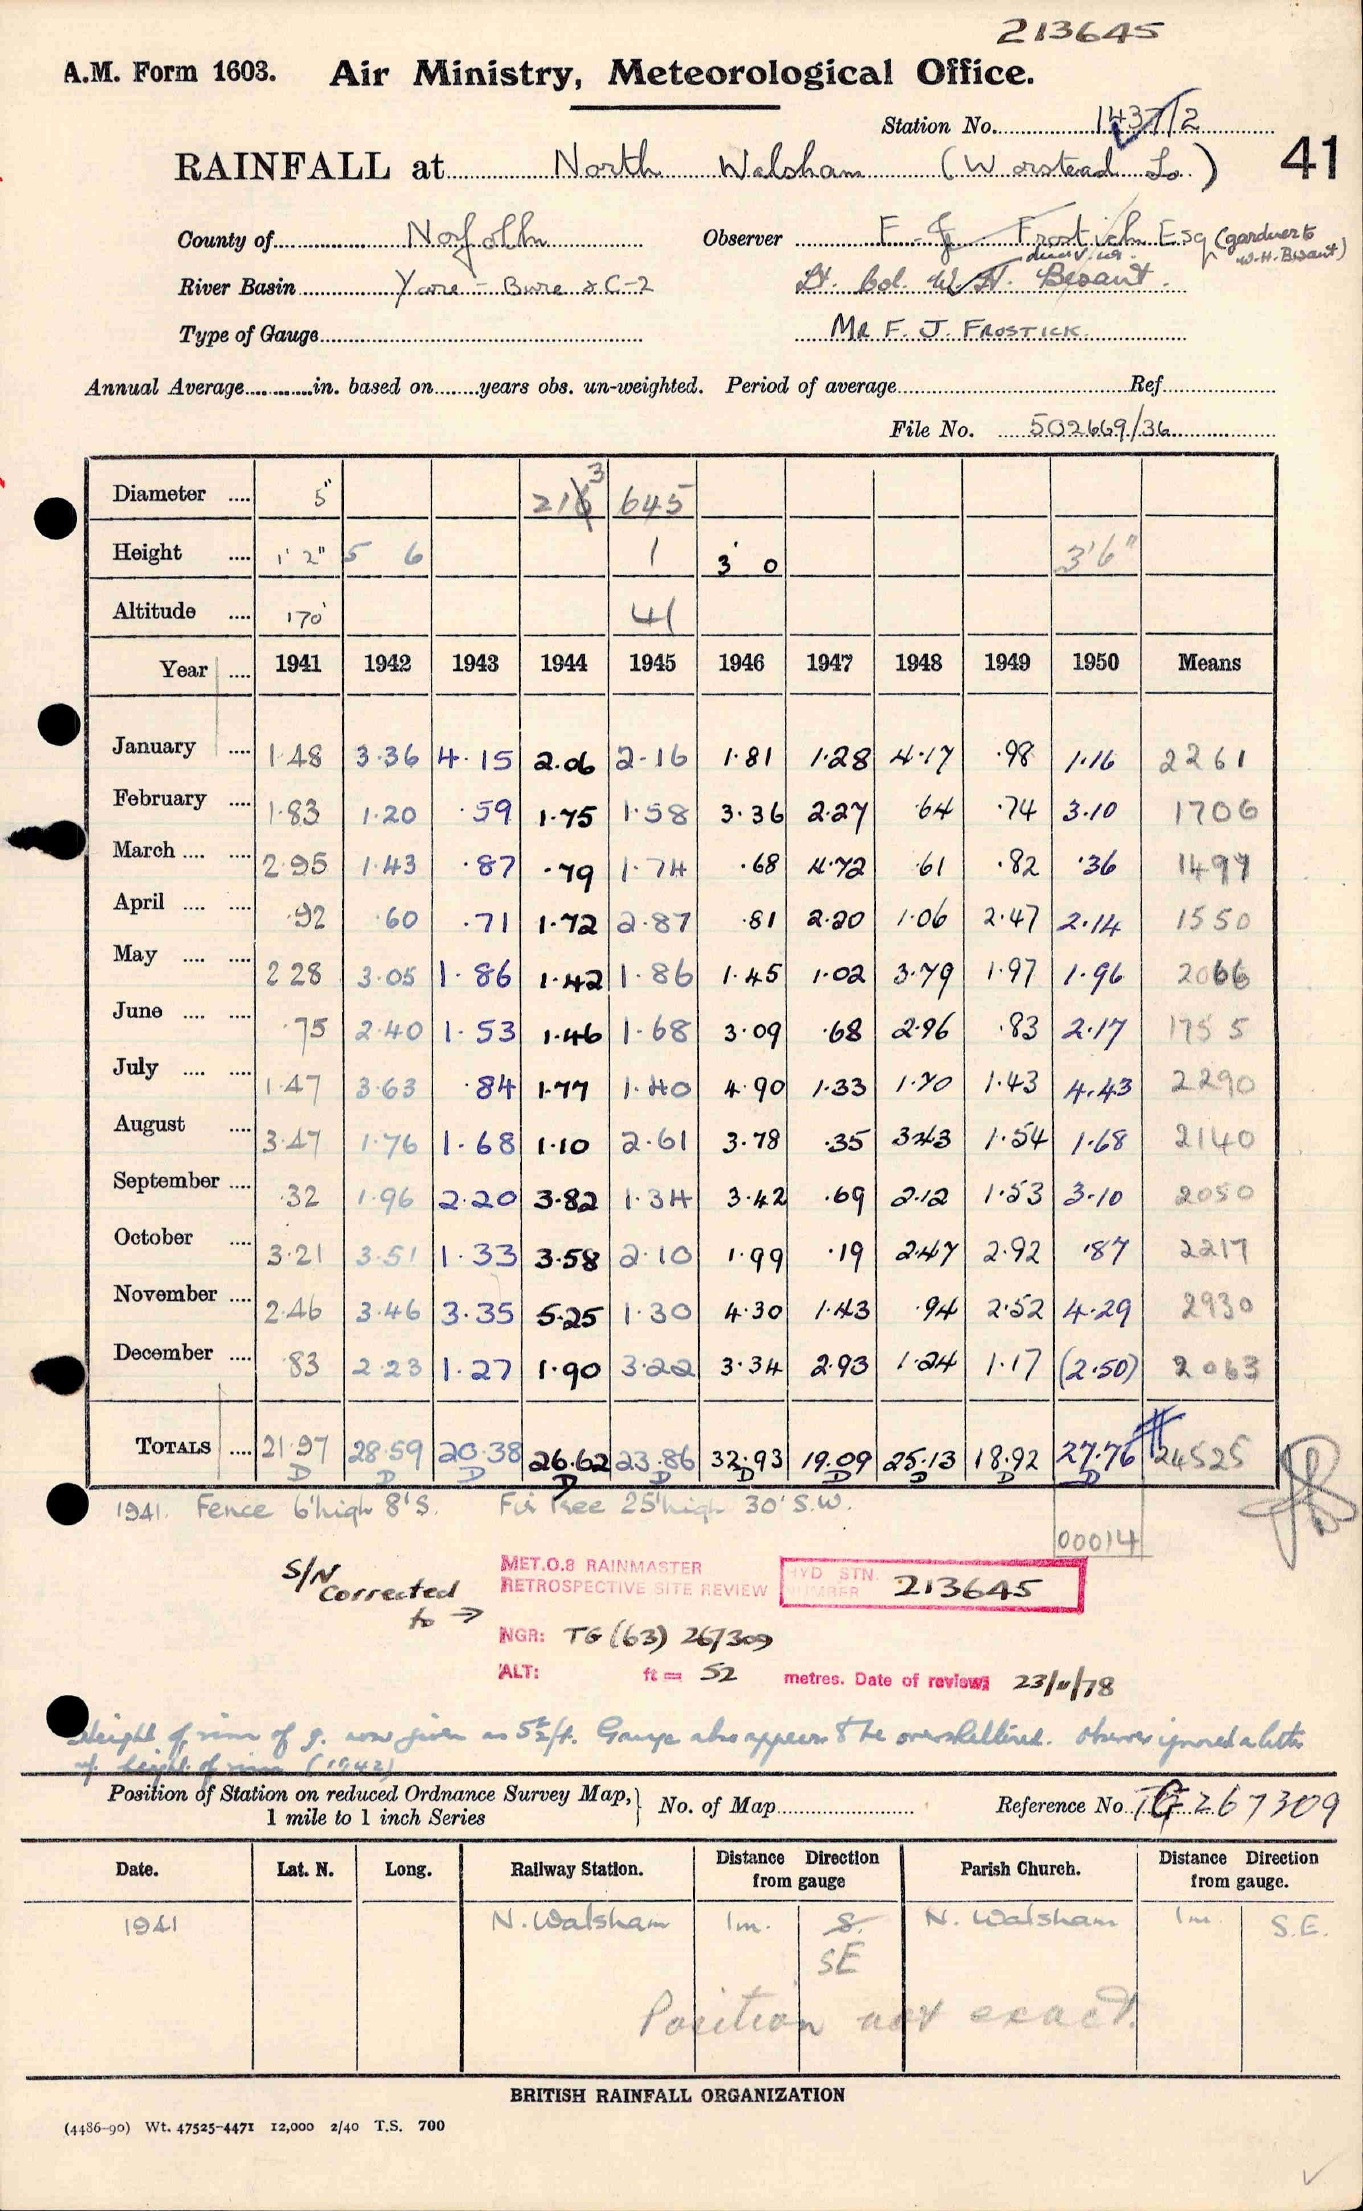 213645
A.M. Form 1603. Air Ministry, Meteorological Office.
Station No. 1437/2
RAINFALL at North Walsham (Worstead Lo.) 41
County of Norfolk Observer F. J. Frostick Esq (gardener to
W.H. Besant)
River Basin Yare - Bure &c-2 Lt. Col. W. H. Besant.
Type of Gauge MR F. J. FROSTICK.
Annual Average in. based on years obs. un-weighted. Period of average Ref
File No. 502669/36
Diameter 5" 216 3 645
Height 1' 2" 5 6 1 3' 0 3'6"
Altitude 170' 41
Year 1941 1942 1943 1944 1945 1946 1947 1948 1949 1950 Means
January 1.48 3.36 4.15 2.06 2.16 1.81 1.28 4.17 .98 1.16 2261
February 1.83 1.20 .59 1.75 1.58 3.36 2.27 .64 .74 3.10 1706
March 2.95 1.43 .87 .79 1.74 .68 4.72 .61 .82 .36 1497
April .92 .60 .71 1.72 2.87 .81 2.20 1.06 2.47 2.14 1550
May 2 28 3.05 1.86 1.42 1.86 1.45 1.02 3.79 1.97 1.96 2066
June .75 2.40 1.53 1.46 1.68 3.09 .68 2.96 .83 2.17 1755
July 1.47 3.63 .84 1.77 1.40 4.90 1.33 1.70 1.43 4.43 2290
August 3.47 1.76 1.68 1.10 2.61 3.78 .35 3.43 1.54 1.68 2140
September .32 1.96 2.20 3.82 1.34 3.42 .69 2.12 1.53 3.10 2050
October 3.21 3.51 1.33 3.58 2.10 1.99 .19 2.47 2.92 .87 2217
November 2.46 3.46 3.35 5.25 1.30 4.30 1.43 .94 2.52 4.29 2930
December .83 2.23 1.27 1.90 3.22 3.34 2.93 1.24 1.17 (2.50) 2063
TOTALS 21.97 28.59 20.38 26.62 23.86 32.93 19.09 25.13 18.92 27.76 24525
D D D D D D D D D
1941. Fence 6' high 8' S. Fir Tree 25' high 30' S.W.
00014
S/N Corrected to →
MET.O.8 RAINMASTER
RETROSPECTIVE SITE REVIEW
HYD STN. NUMBER 213645
NGR: TG (63) 267309
ALT: ft = 52 metres. Date of review: 23/11/78
Height of rim of g. now given as 5½ ft. Gauge also appears to be oversheltered. Observer ignored a letter
of height of rim (1942)
Position of Station on reduced Ordnance Survey Map, 1 mile to 1 inch Series No. of Map Reference No. TG 267309
Date. Lat. N. Long. Railway Station. Distance Direction from gauge Parish Church. Distance Direction from gauge.
1941 N. Walsham 1m. S. N. Walsham 1m. S.E.
SE
Position not exact.
BRITISH RAINFALL ORGANIZATION
(4486-90) Wt. 47525-4471 12,000 2/40 T.S. 700